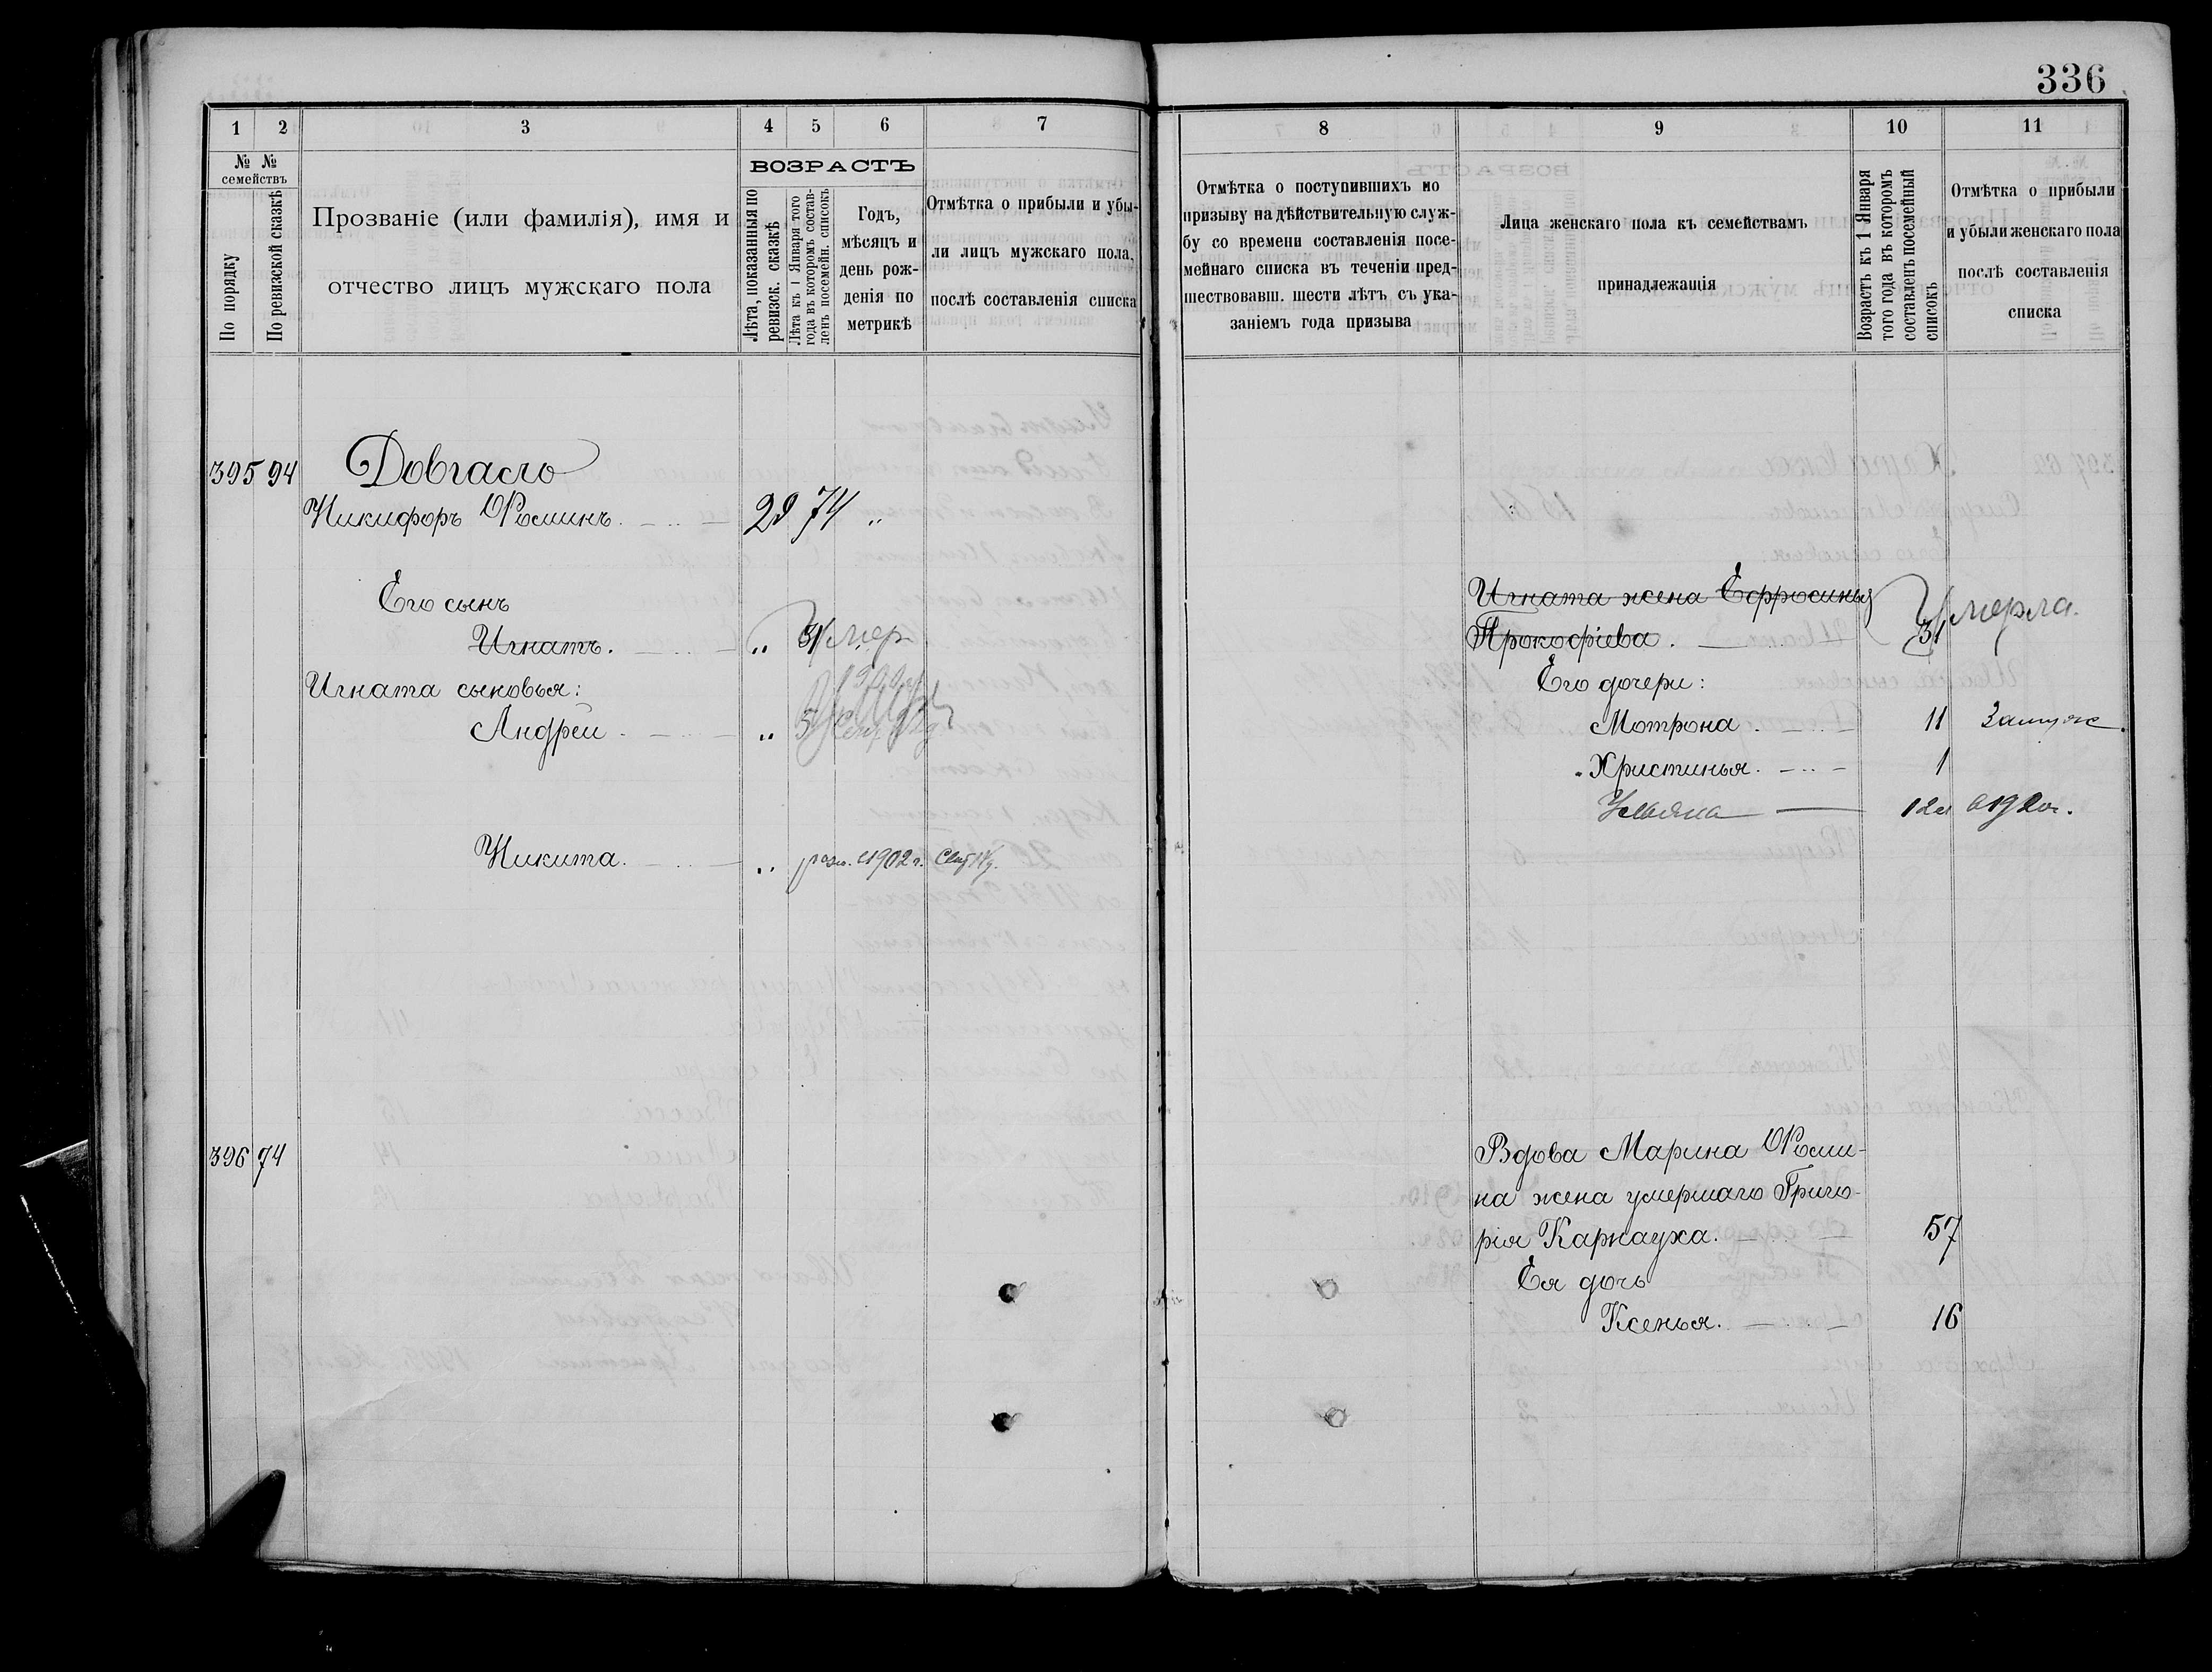 336
1 2 3 4 5 6 7 8 9 10 11
№ № семействъ
По порядку
По ревизской сказкѣ
Прозваніе (или фамилія), имя и
отчество лицъ мужскаго пола
ВОЗРАСТЪ
Лѣта, показанныя по
ревизск. сказкѣ
Лѣта къ 1 Января того
года въ которомъ состав-
ленъ посемейн. списокъ
Годъ,
мѣсяцъ и
день рож-
денія по
метрикѣ
Отмѣтка о прибыли и убы-
ли лицъ мужскаго пола,
послѣ составленія списка
Отмѣтка о поступившихъ по
призыву на дѣйствительную служ-
бу со времени составленія посе-
мейнаго списка въ теченіи пред-
шествовавш. шести лѣтъ съ ука-
заніемъ года призыва
Лица женскаго пола къ семействамъ
принадлежащія
Возрастъ къ 1 Января
того года въ которомъ
составленъ посемейный
списокъ
Отмѣтка о прибыли
и убыли женскаго пола
послѣ составленія
списка
395 94 Довгасло
Никифоръ Ѳоминъ. 29 74 "
Его сынъ
Игнатъ. " 31 Умер
Игната сыновья:
Андрей " 5
Никита. " рож. 1902 г.
Игната жена Ефросинья
Прокофіева. 31 Умерла.
Его дочери:
Мотрона. 11 Замуж.
Христинья. 1
Ульяна 12
396 74 Вдова Марина Ѳоми-
на жена умершаго Григо-
рія Карнауха. 57
Ея дочь
Ксенья. 16